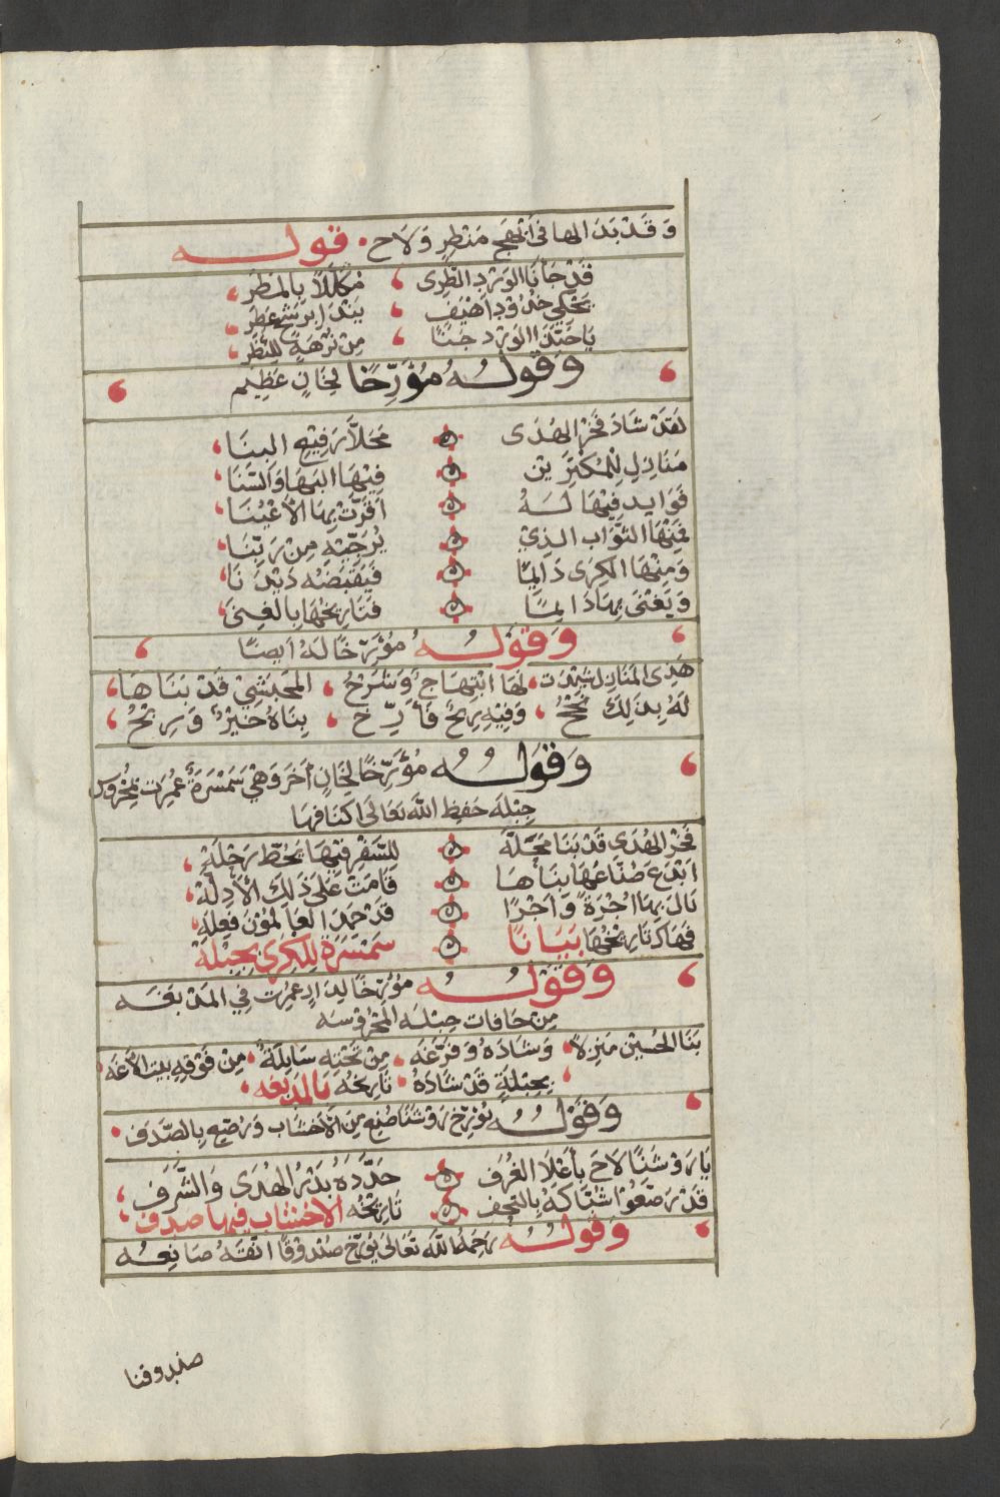 وَقَدْ بَدَ الها فى أَبْهَجِ مَنْظرٍ وَلاَح . قوله
قَدْ جَاءَنَا الوَرْدِ الطَّرِى ، مُكَلَّلاً بِالمَطَرِ ،
يَحْكِي خدُودِ اَهْيَفٍ ،
يَاحَبَّذَا الوَرْد جَنًا ، مِنْ نُزْهَةٍ لِلنَّظَرِ ،
وَقَولُهُ مُؤَرِّخًا لِخَانٍ عَظِيم
لَقَدْ شَادَ فَخْرُ الهُدَى مَحَلاًّ رَفِيْعِ البِنَا ،
مَنَازِلِ لِلمُكْتَرِيْن فِيْهَا البَهَا وَالسَّنَا ،
فَوَايِد فِيْهَا لَهُ اَقَرَّتْ بِهَا الأَعْيُنَا ،
فَمِنْهَا الثَّوَابِ الذِيْ يُرَجِّيْهِ مِنْ رَبِّنَا ،
وَمِنْهَا الكِرَى دَايِمًا فَيَقْبَضُه دَيْدَنَا ،
وَيَغْنَى بِهَا دَايمًا فَتَارِيخُهَا بِالغِنَى ،
وَقَوْلُهُ مُؤَرِّخًا لَهُ اَيضًا
هَذِى المَنَازِل شِيْدَت ، لَهَا ابْتِهَاجٌ وَشَرْحُ ، المَحْبَشِيْ قَدْ بَنَاهَا ،
لَهُ بِذَلِكَ نُجْحُ ، وَفِيْهِ رِبْحٌ فَأَرِّخ ، بِنَاهُ خَيْرٌ وَرِبْحُ ،
وَقَولُهُ مُؤَرِّخًا لِخَانٍ اَخَرَ وَهْيَ سَمْسَرَةٌ عُمِرَت بِمَحْرُوس
جِبْلَه حَفِظ اللّه تَعَالَى اَكْنَافهَا
فَخْرُ الهُدَى قَدْ بَنَا مَحَلَّهْ لِلسَّفْرِ فِيْهَا يَحُطّ رَحْلَهْ ،
اَبْدَعَ صُنَّاعُهَا بِنَاهَا قَامَتْ عَلَى ذَلِكَ الأَدِلَّهْ ،
نَالَ بِهَا اُجْرَةً وَاَجْرًا قَدْ حَمِدَ العَالمُوْنَ فِعْلَهْ ،
فَهَاكَ تَارِيْخُهَا بَيَانًا سَمْسَرَة لِلكِرَى بِجِبْلَهْ
وَقَوْلُهُ مُؤَرِّخًا لِدَارٍ عمِرَت فِي المَدْبَغَه
مِنْ حَافَات جِبْلَه المَحْرُوسَه
بَنَا الحُسَيْن مَنْزِلاً ، وَشَادَهُ وَفَرَّغَه ، مِنْ تَحْتِه سَايلَةٌ ، مِنْ فَوْقِهِ
بِجِبْلَةٍ قَدْ شَادَهُ ، تَارِيخُهُ بِالمَدْبَغَه ،
وَقَوْلُهُ يُؤَرِّخ رَوْشَنًا صُنِعَ مِنَ الأَخْشَاب وَرُصِّع بِالصَّدَف .
يَا رَوْشَنًا لاَحَ بِأَعْلاَ الغُرَف جَدَّدَهُ بَدْرُ الهُدَى وَالشَّرَف ،
قَدْ رَصَّعُوا شُبَّاكَهُ بِالتُّحَف تَارِيْخُه الأخشاب فيها صدف ،
وَقَولُهُ رَحِمَهُ اللّه تَعَالَى يُؤَرِّخ صُنْدوْقًا اتْقَنَهُ صَانِعُه
صندوقنا